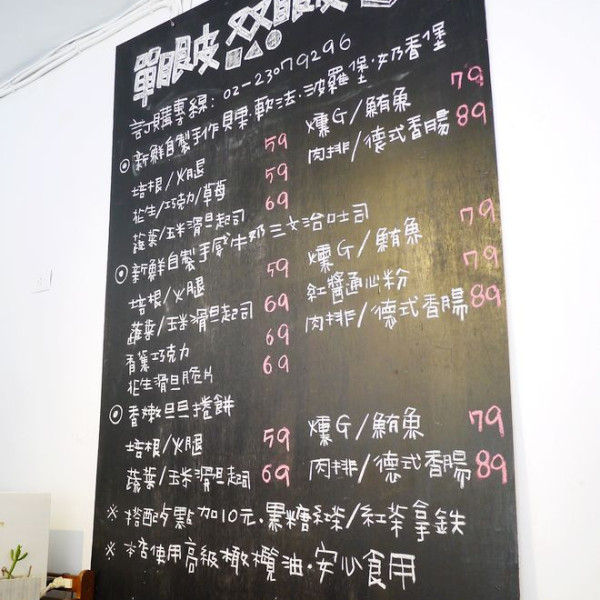 單眼皮 雙眼皮
訂購專線：02-23079296
◎新鮮自製手作貝果·軟法·波羅堡·奶香堡
培根/火腿 59
花生/巧克力/草莓 59
蔬菜/玉米滑旦起司 69
燻G/鮪魚 79
肉排/德式香腸 89
◎新鮮自製手感牛奶三文治吐司
培根/火腿 59
蔬菜/玉米滑旦起司 69
香蕉巧克力 69
花生滑旦脆片 69
燻G/鮪魚 79
紅醬通心粉 79
肉排/德式香腸 89
◎香嫩旦旦捲餅
培根/火腿 59
蔬菜/玉米滑旦起司 69
燻G/鮪魚 79
肉排/德式香腸 89
※搭配歺點加10元·黑糖紅茶/紅茶拿鉄
※本店使用高級橄欖油·安心食用